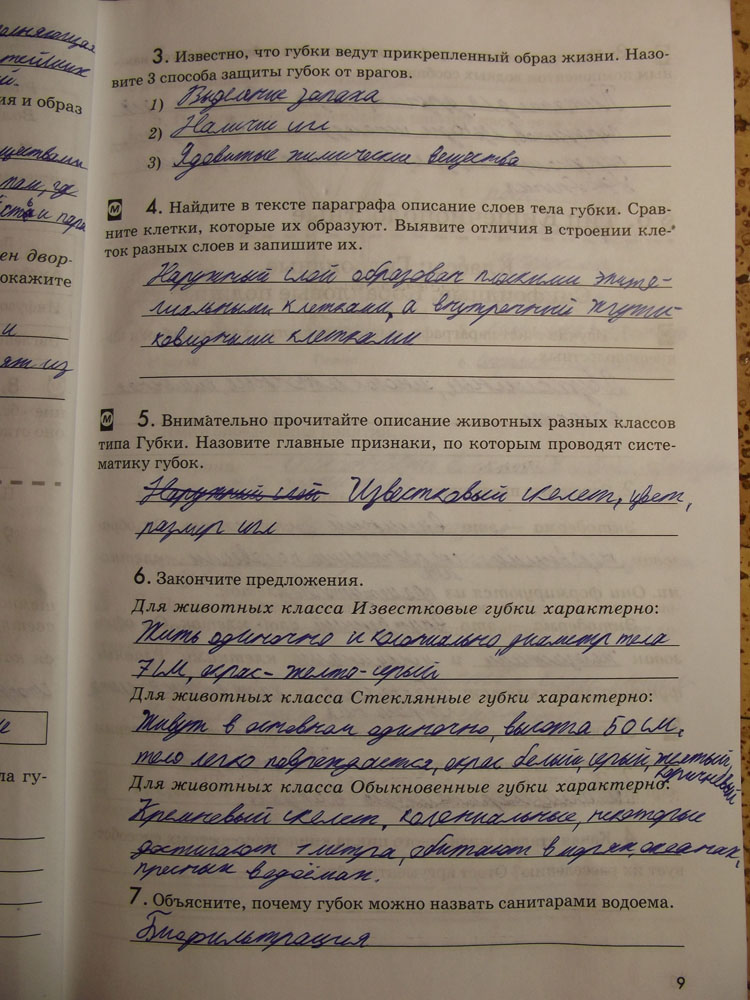 лняющая
тейших
й.
ия и образ
ществами
там, где
ен двор-
окажите
и
ят из
е
ла гу-
3. Известно, что губки ведут прикрепленный образ жизни. Назо-
вите 3 способа защиты губок от врагов.
1) Выделение запаха
2) Наличие игл
3) Ядовитые химические вещества
М 4. Найдите в тексте параграфа описание слоев тела губки. Срав-
ните клетки, которые их образуют. Выявите отличия в строении кле-
ток разных слоев и запишите их.
Наружный слой образован плоскими эпите-
лиальными клетками, а внутренний жгути-
ковидными клетками
М 5. Внимательно прочитайте описание животных разных классов
типа Губки. Назовите главные признаки, по которым проводят систе-
матику губок.
Наружный слой Известковый скелет, цвет,
размер игл
6. Закончите предложения.
Для животных класса Известковые губки характерно:
Жить одиночно и колониально, диаметр тела
7 см, окрас - желто-серый
Для животных класса Стеклянные губки характерно:
Живут в основном одиночно, высота 50 см,
тело легко повреждается, окрас белый, серый, желтый,
коричневый
Для животных класса Обыкновенные губки характерно:
Кремневый скелет, колониальные, некоторые
достигают 1 метра, обитают в морях, океанах,
пресных водоёмах.
7. Объясните, почему губок можно назвать санитарами водоема.
Биофильтрация
9